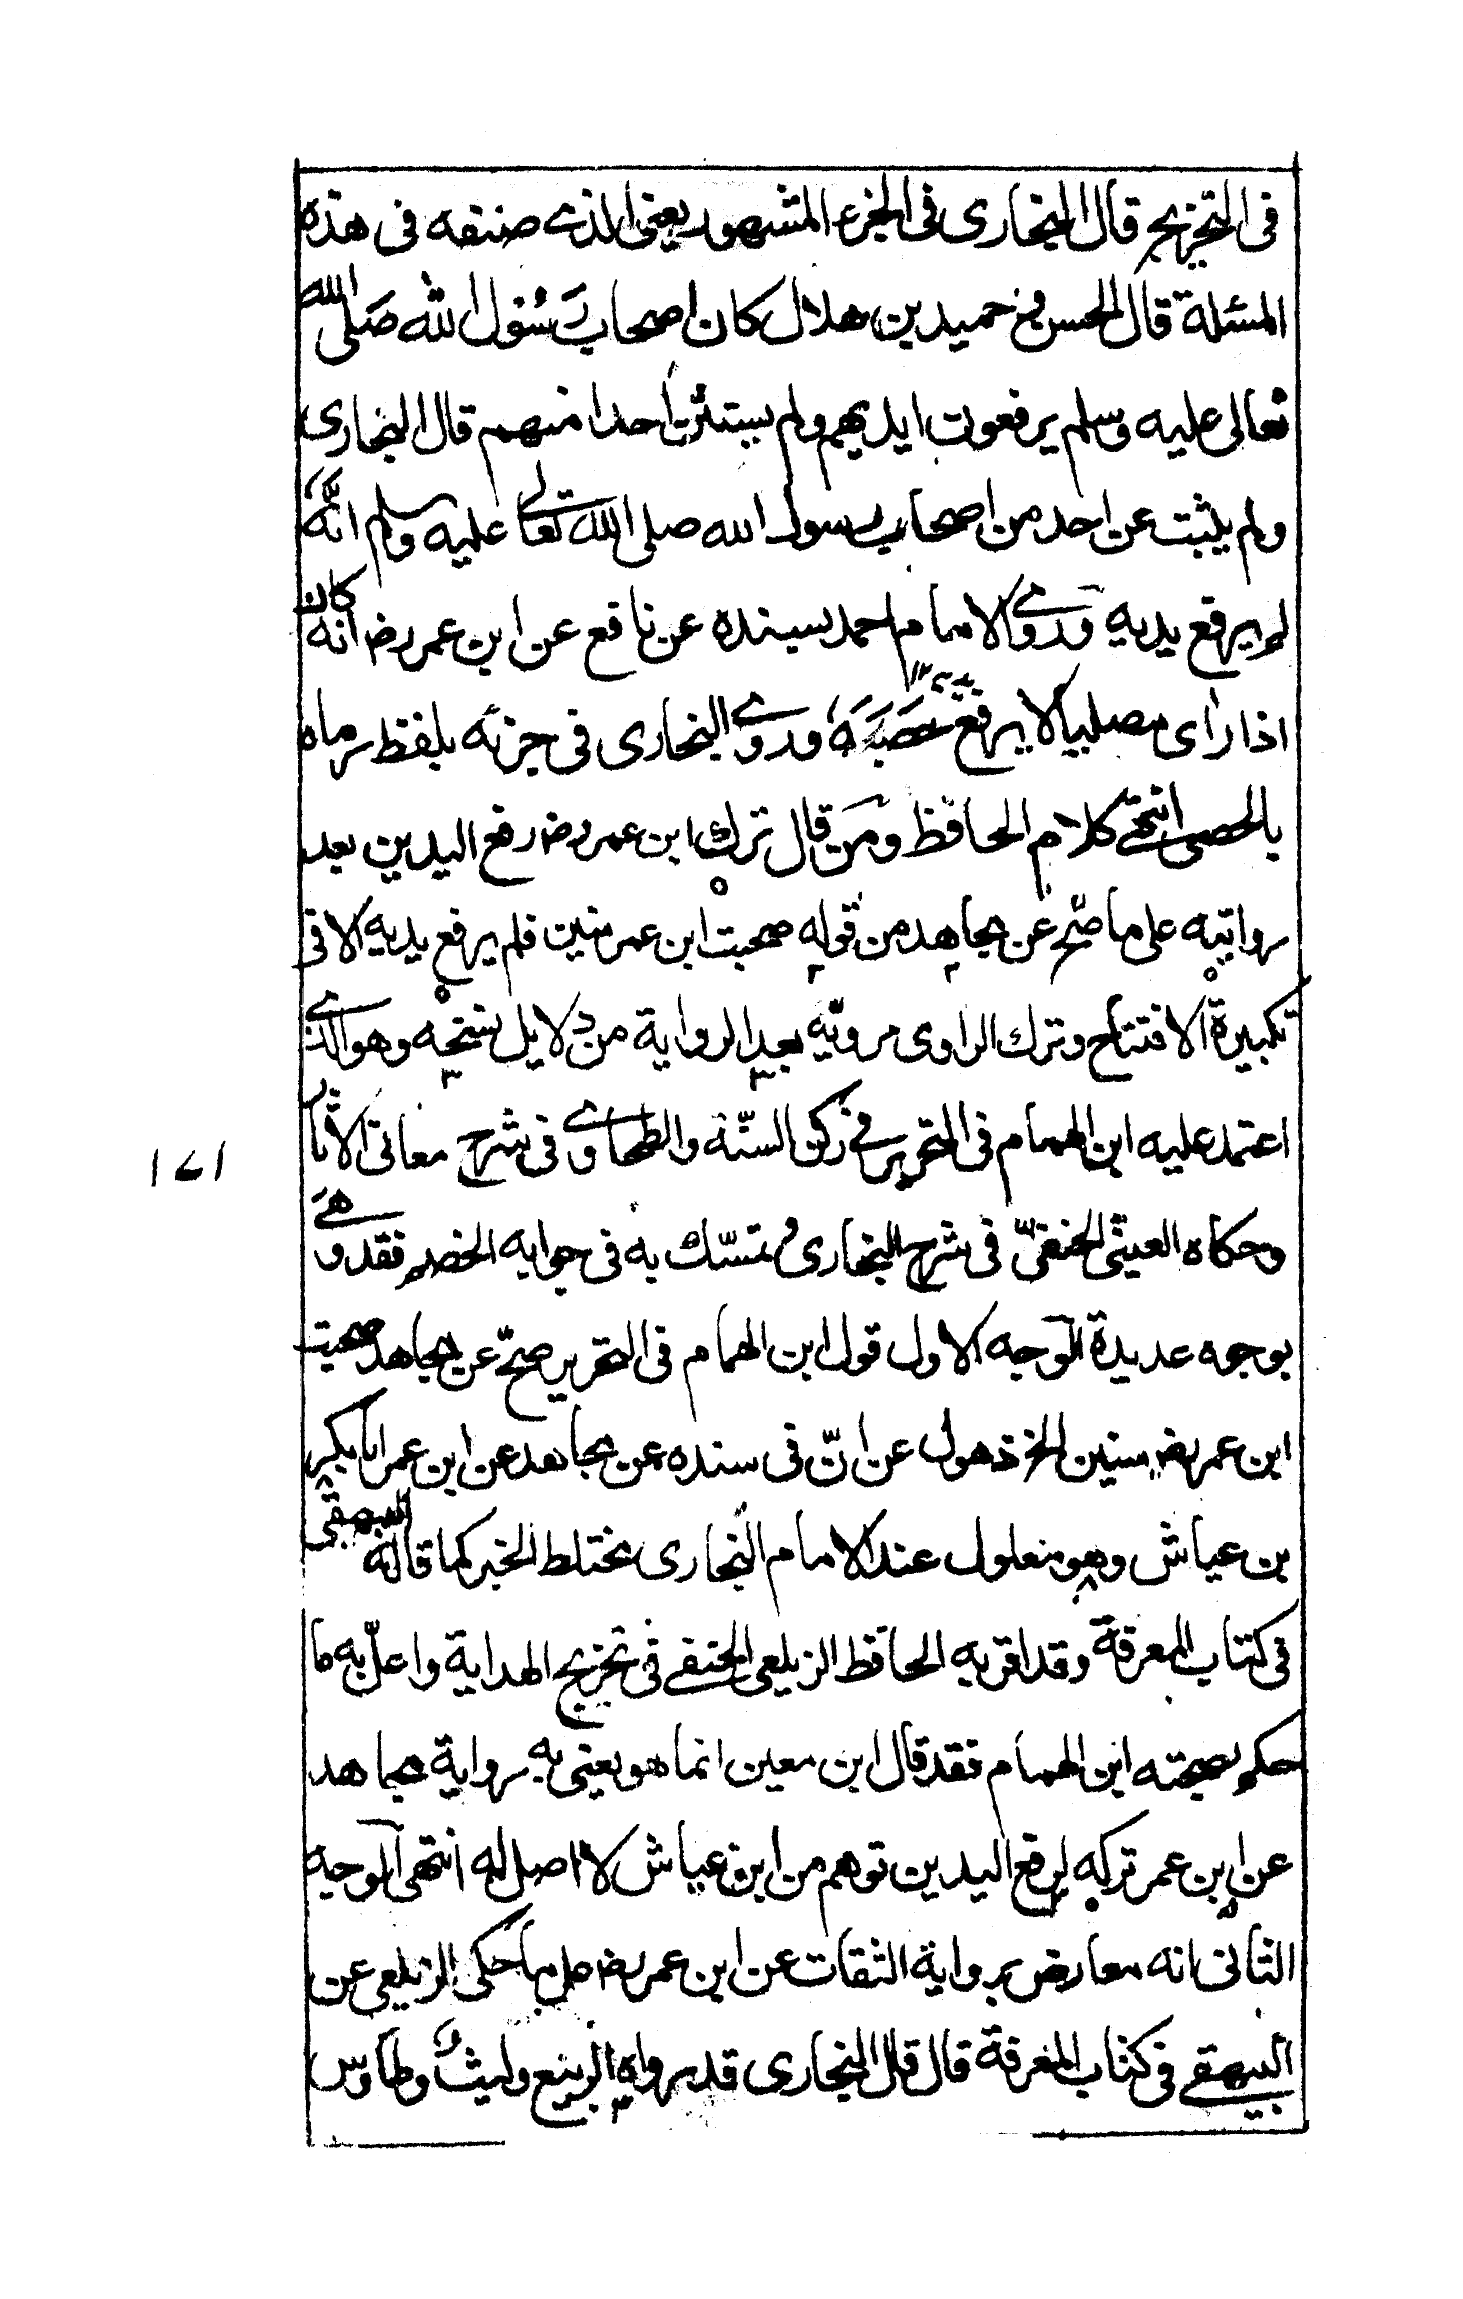 فى التخريج قال البخارى فى الجزء المشهور يعنى الذى صنفه فى هذه
المسئلة قال الحسن و حميد بن هلال كان اصحاب رَسُول الله صَلى الله
تعالى عليه وسلم يرفعون ايديهم ولم يستثن احدا منهم قال البخارى
ولم يثبت عن احد من اصحاب رسول الله صلى الله تعالى عليه وسلم انَّه
لم يرفع يديه وروى الامام احمد بسنده عن نافع عن ابن عمر رض انه كان
اذا راى مصليا لا يرفع حَصَبَهُ وروى البخارى فى جزئه بلفظ رماه
بالحصى انتهى كلام الحافظ ومَن قال ترك ابن عمر رض رفع اليدين بعد
روايته على ما صَحّ عن مجاهد من قوله صحبت ابن عمر سنين فلم يرفع يديه الا فى
تكبيرة الافتتاح وترك الراوى مرويّه بعد الرواية من دلايل نسخه وهو الذى
اعتمد عليه ابن الهمام فى التحرير فى ركن السنّة والطحاوى فى شرح معانى الاثار
وحكاه العينى الحنفىّ فى شرح البخارى و تمسّك به فى جوابه الخصم فقد وهَى
بوجوه عديدة الوجه الاول قول ابن الهمام فى التحرير صحّ عن مجاهد صحبت
ابن عمر رض سنين الخ ذهول عن انّ فى سنده عن مجاهد عن ابن عمر ابا بكر
بن عياش وهو معلول عند الامام البخارى مختلط الخبر كما قاله البيهقى
فى كتاب المعرفة وقد اقر به الحافظ الزيلعى الحنفى فى تخريج الهداية واعلّ به ما
حكم بصحته ابن الهمام فقد قال ابن معين انما هو يعنى به رواية مجاهد
عن ابن عمر تركه لرفع اليدين توهم من ابن عياش لا اصل له انتهى الوجه
الثانى انه معارض برواية الثقات عن ابن عمر رض مثل ما حكى الزيلعى عن
البيهقى فى كتاب المعرفة قال قال البخارى قد رواه الربيع وليث و طاوس
١٧١